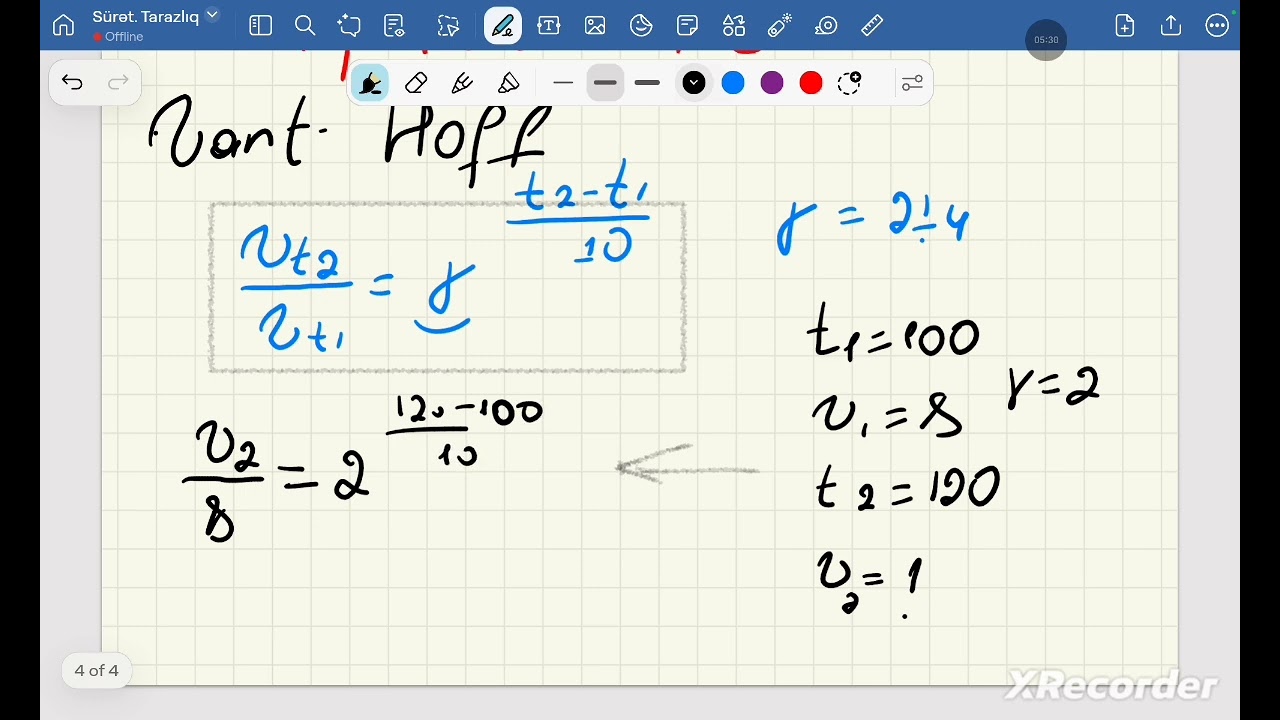 Sürət. Tarazlıq
Offline
05:30
Vant- Hoff
υt2/υt1 = γ^((t2-t1)/10)
γ = 2÷4
t1=100
υ1=8
γ=2
t2=120
υ2=?
υ2/8=2^((120-100)/10)
4 of 4
XRecorder